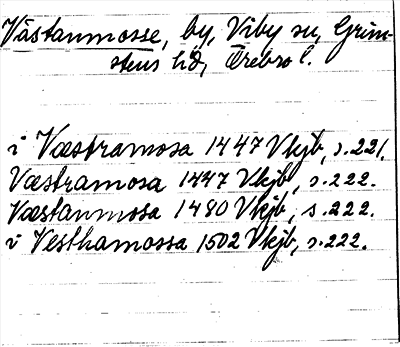 Västanmosse, by, Viby sn, Grim-
stens hd, Örebro l.
i Væstramosa 1447 Vkjb, s. 221.
Væstramosa 1447 Vkjb, s. 222.
Væstanmosa 1480 Vkjb, s. 222.
i Vesthamossa 1502 Vkjb, s. 222.